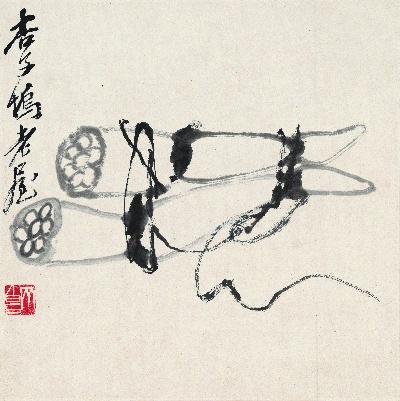 杏子塢老民